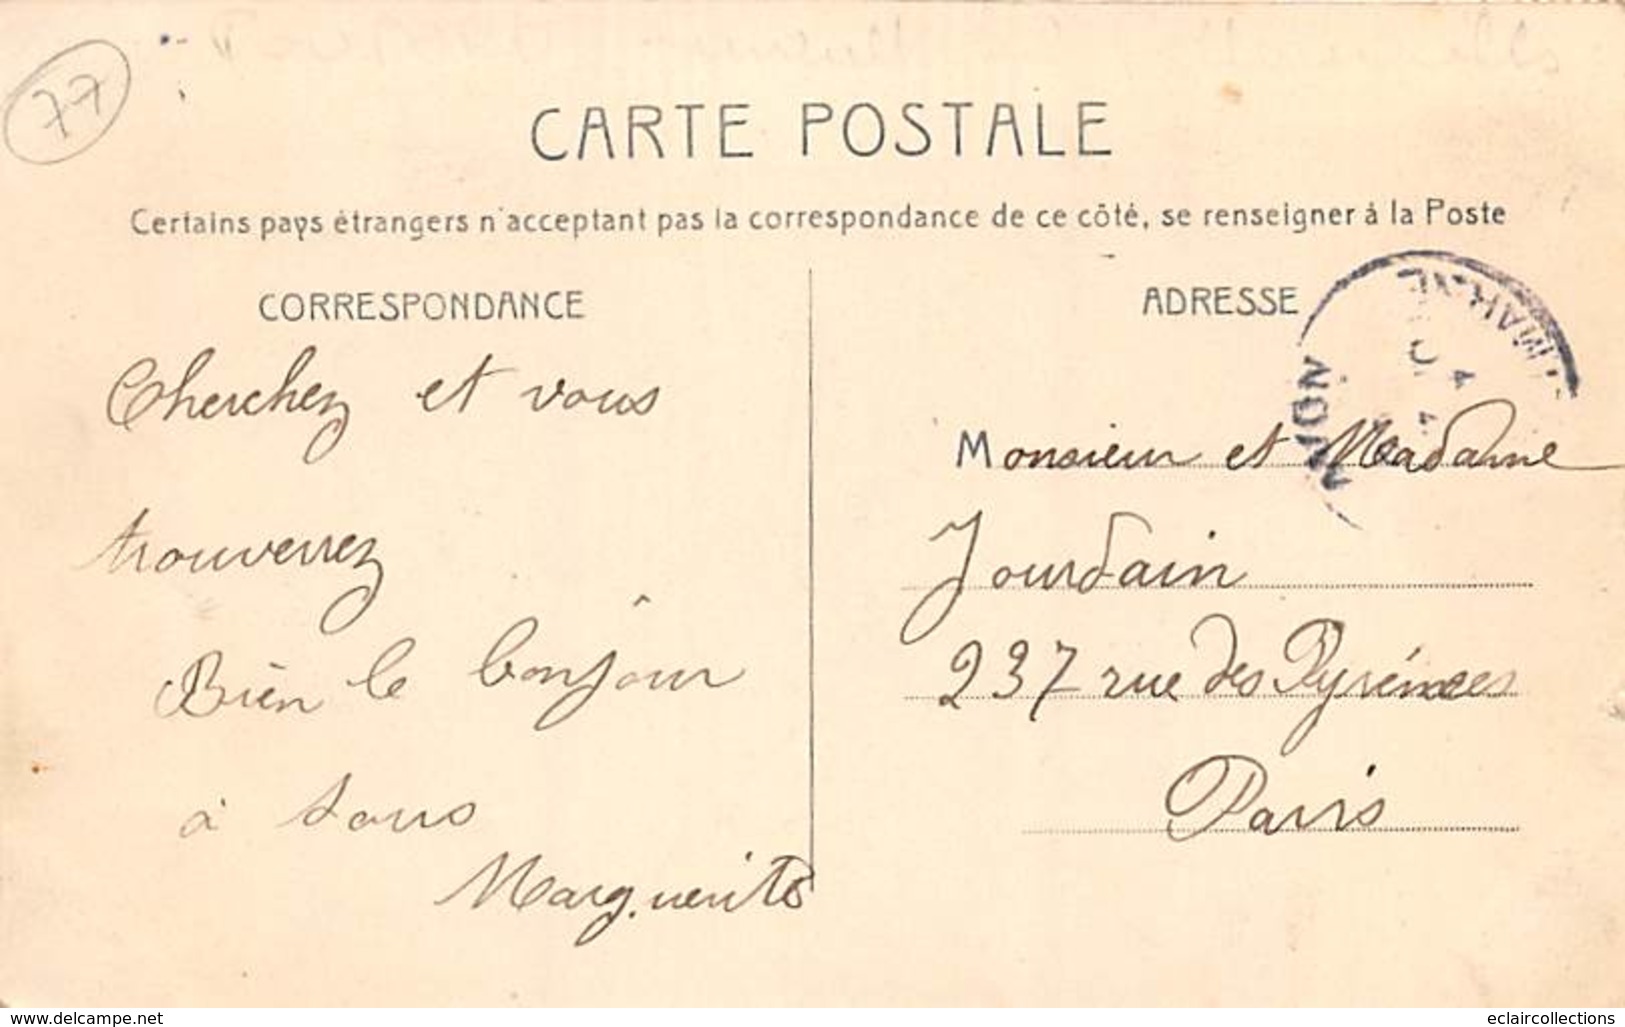 77
CARTE POSTALE
Certains pays étrangers n'acceptant pas la correspondance de ce côté, se renseigner à la Poste
CORRESPONDANCE
Cherchez et vous
trouverrez
Bien le bonjour
à tous
Marguerite
ADRESSE
MARNE
Monsieur et Madame
Jourdain
237 rue des Pyrénées
Paris
www.delcampe.net
eclaircollections